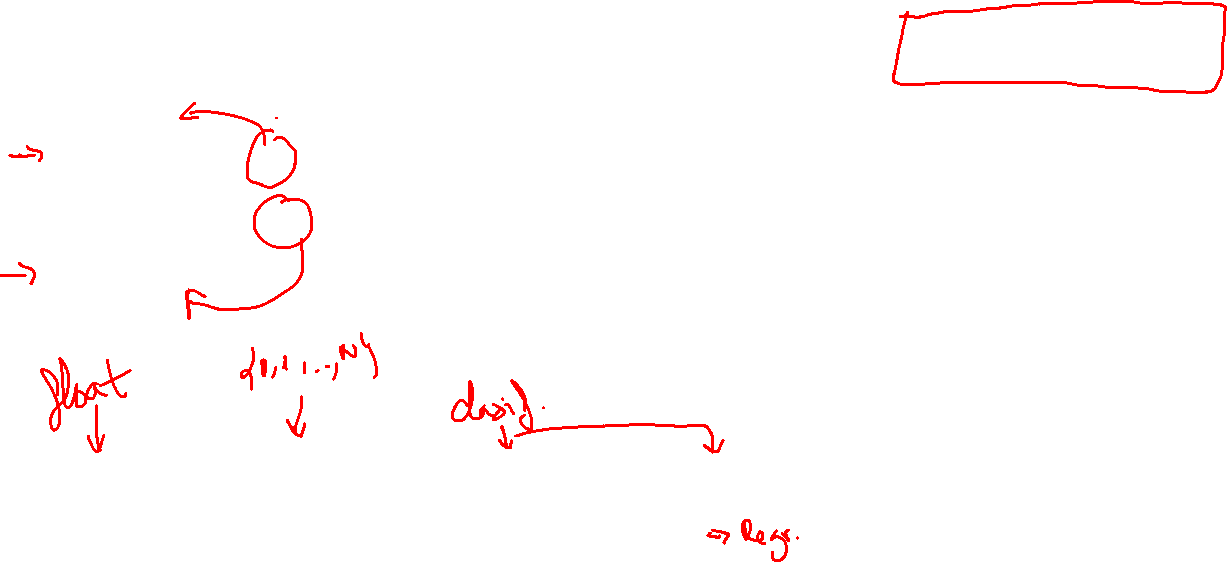 float
{0,1,...,N}
classif.
⇒ Regr.